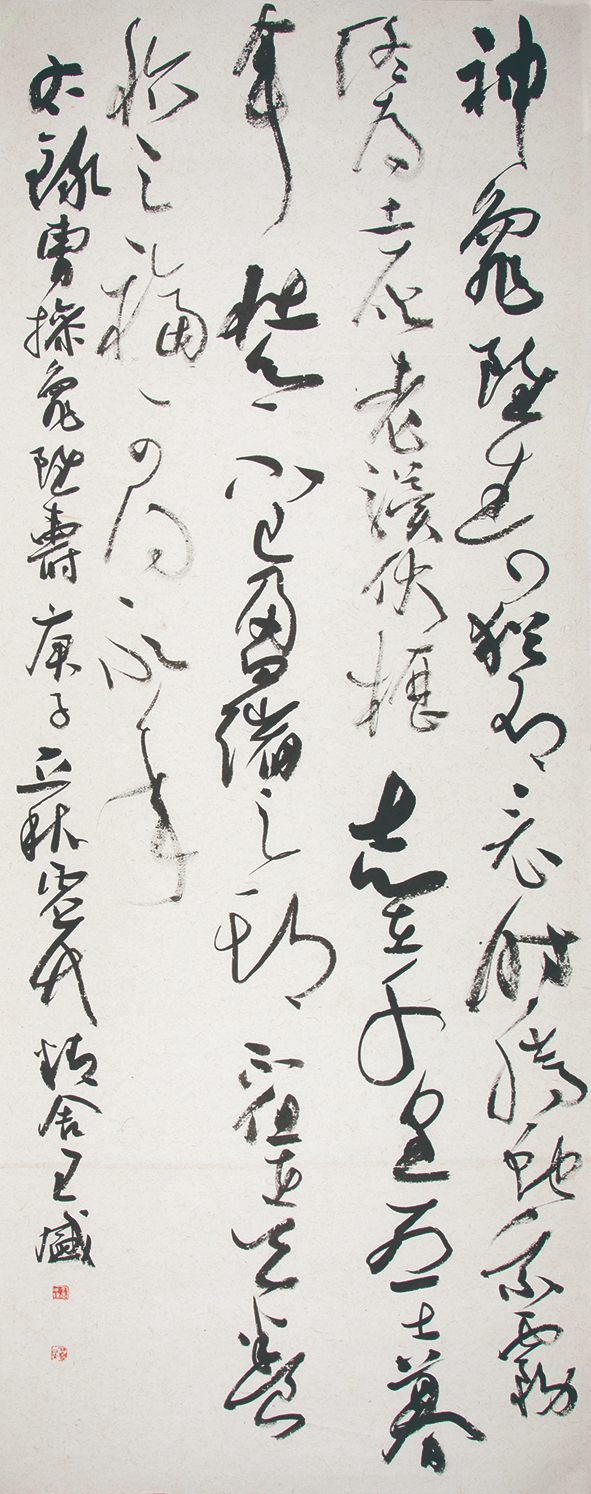 神龜雖壽猶有竟時騰蛇乘霧
終為土灰老驥伏櫪志在千里烈士暮
年壯心不已盈縮之期不但在天養
怡之福可得永年
右錄曹操龜雖壽庚子立秋精舍王盛